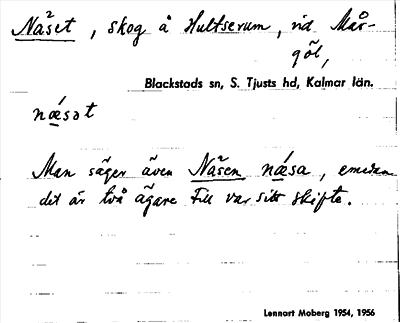 Näset, skog å Hultserum, vid Mår-
göl,
Blackstads sn, S. Tjusts hd, Kalmar län.
næ̀sət
Man säger även Näsen næ̀sa, emedan
det är två ägare till var sitt skifte.
Lennart Moberg 1954, 1956